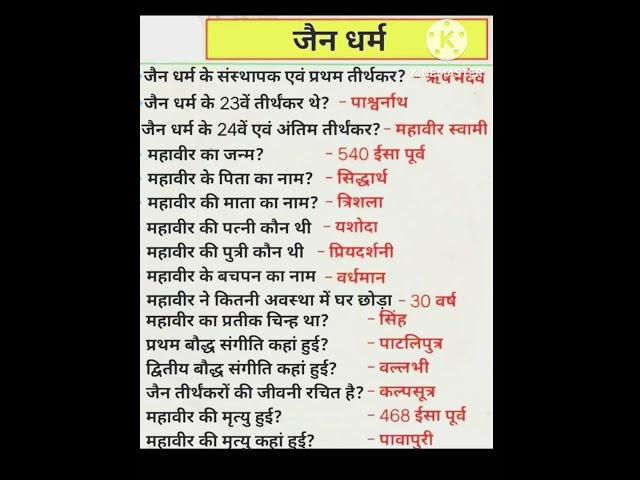 जैन धर्म
KINEMASTER
जैन धर्म के संस्थापक एवं प्रथम तीर्थकर? - ऋषभदेव
जैन धर्म के 23वें तीर्थंकर थे? - पाश्वर्नाथ
जैन धर्म के 24वें एवं अंतिम तीर्थंकर? - महावीर स्वामी
महावीर का जन्म? - 540 ईसा पूर्व
महावीर के पिता का नाम? - सिद्धार्थ
महावीर की माता का नाम? - त्रिशला
महावीर की पत्नी कौन थी - यशोदा
महावीर की पुत्री कौन थी - प्रियदर्शनी
महावीर के बचपन का नाम - वर्धमान
महावीर ने कितनी अवस्था में घर छोड़ा - 30 वर्ष
महावीर का प्रतीक चिन्ह था? - सिंह
प्रथम बौद्ध संगीति कहां हुई? - पाटलिपुत्र
द्वितीय बौद्ध संगीति कहां हुई? - वल्लभी
जैन तीर्थंकरों की जीवनी रचित है? - कल्पसूत्र
महावीर की मृत्यु हुई? - 468 ईसा पूर्व
महावीर की मृत्यु कहां हुई? - पावापुरी